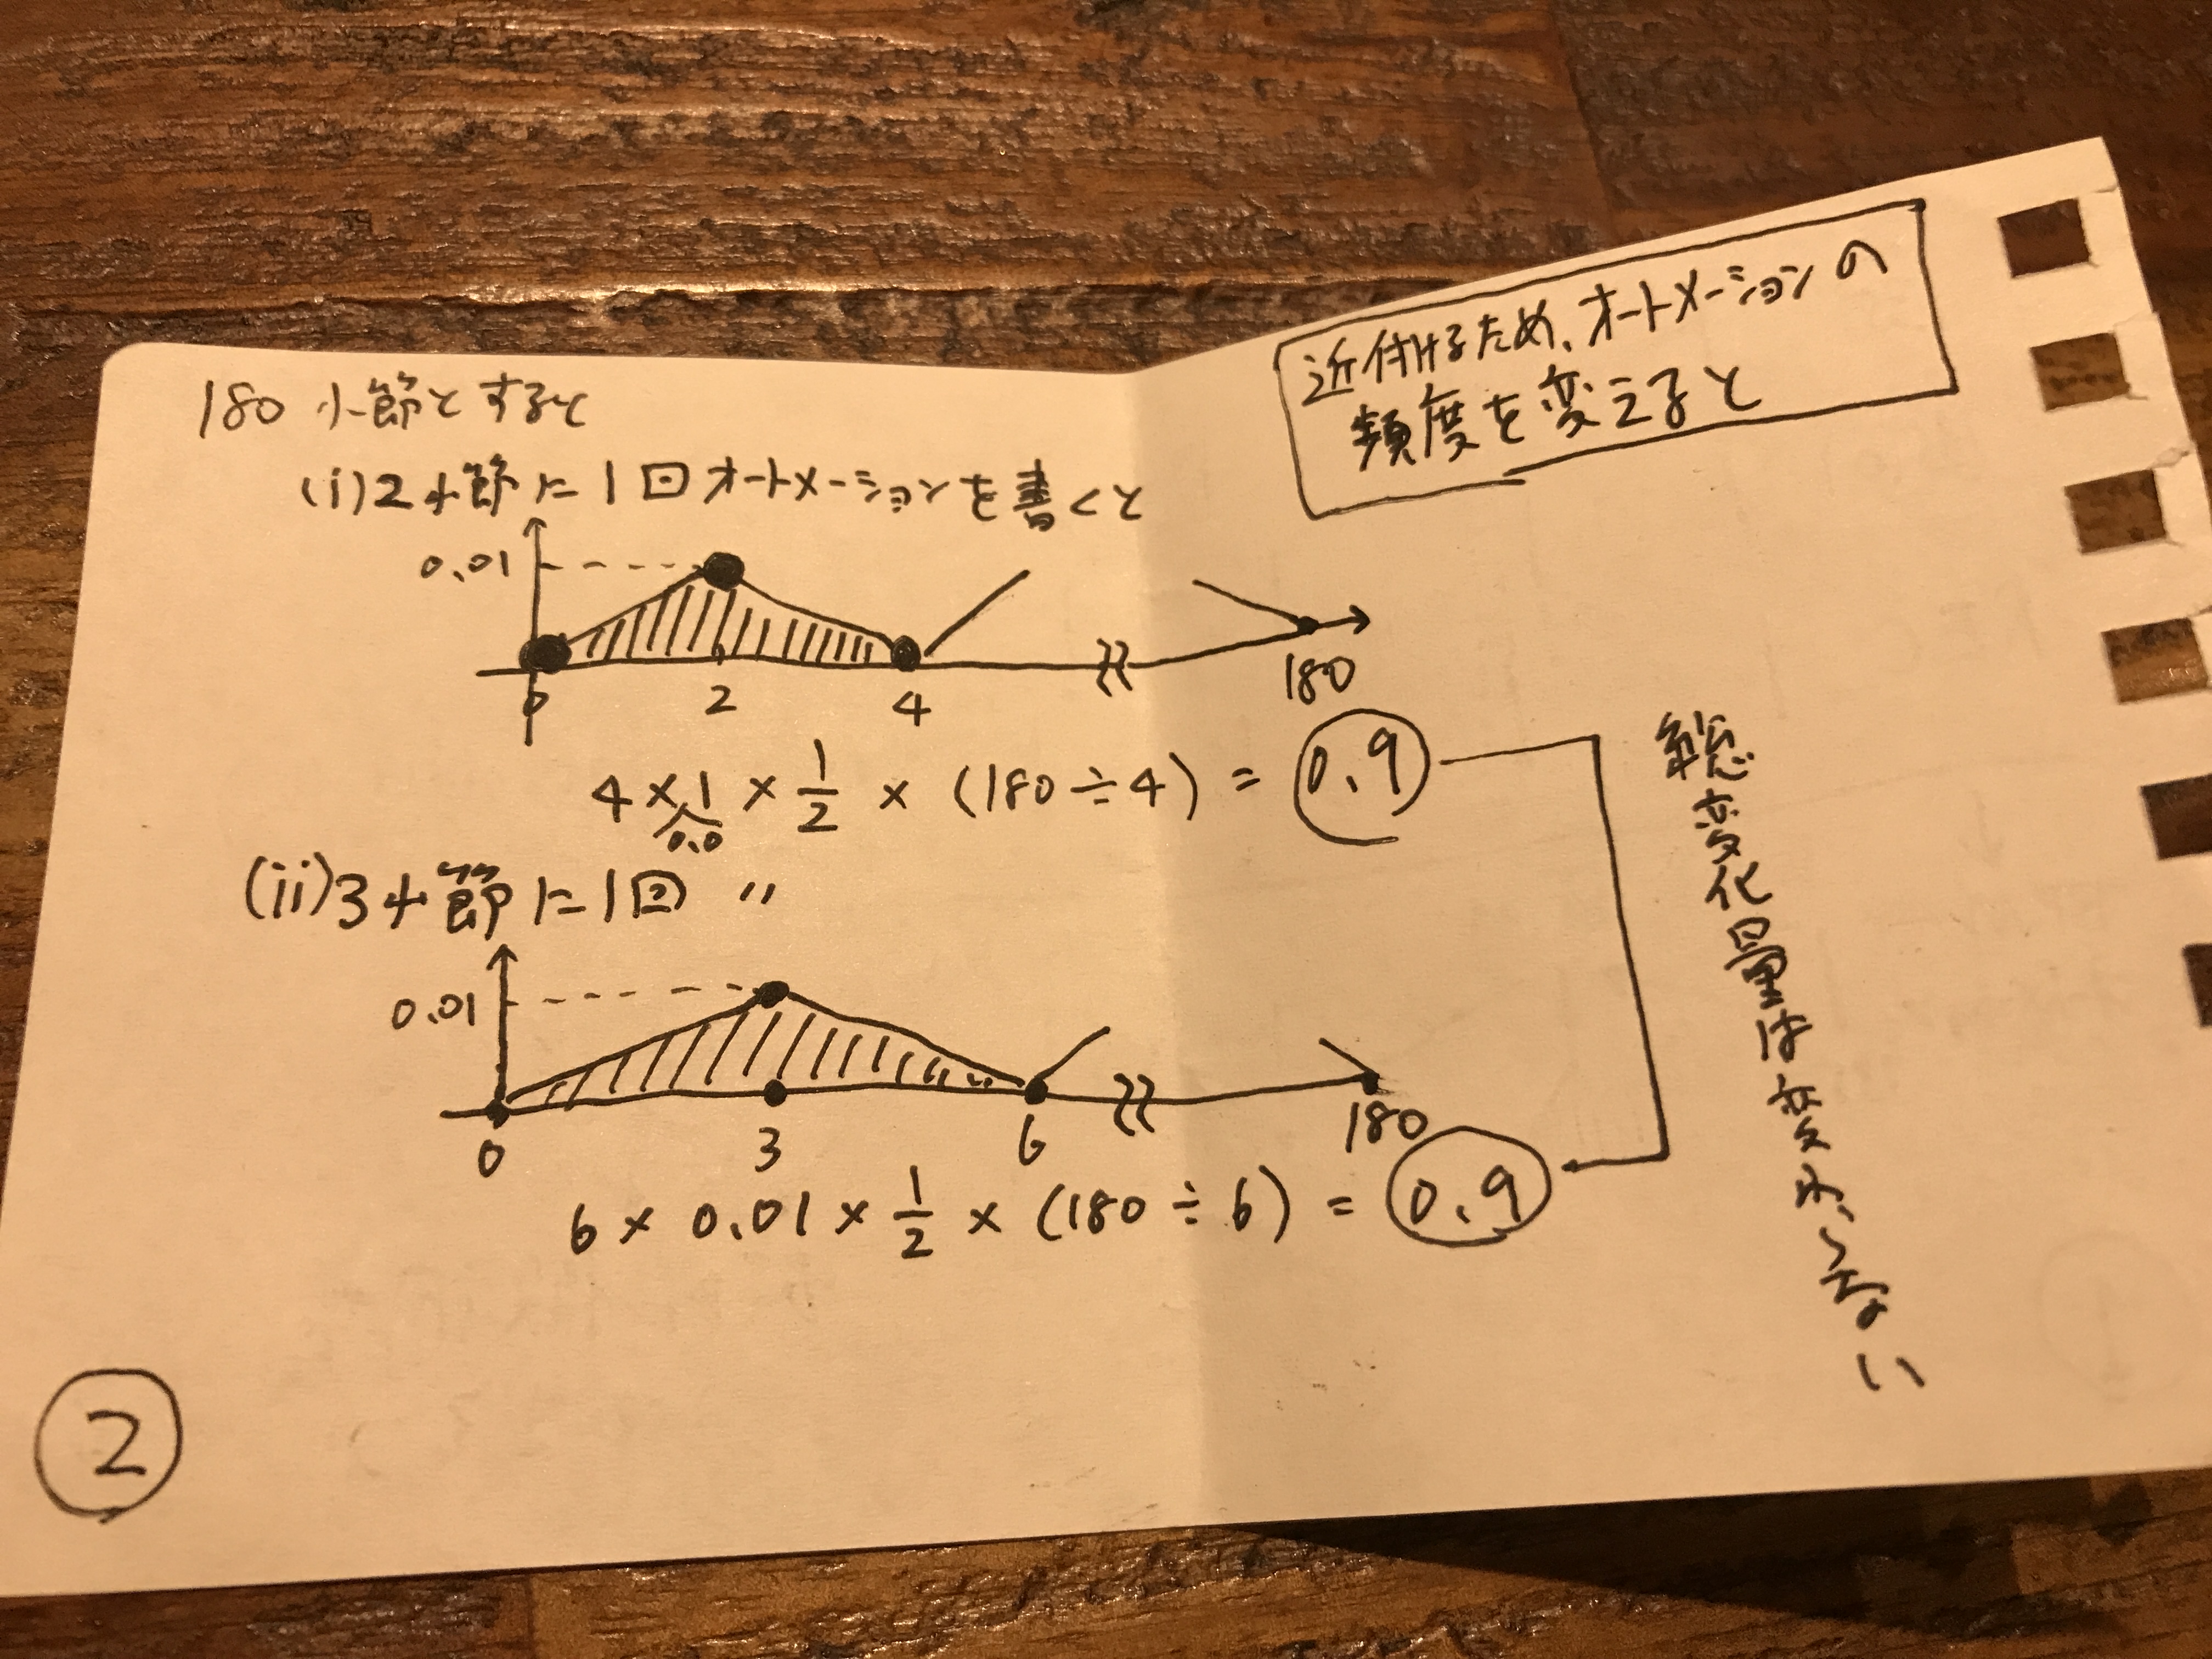 近付けるため、オートメーションの
頻度を変えると
180 小節とすると
(i)2小節に1回オートメーションを書くと
0.01
0 2 4 180
4 × 0.01 × 1/2 × (180÷4) = 0.9
(ii)3小節に1回 〃
0.01
0 3 6 180
6 × 0.01 × 1/2 × (180 ÷ 6) = 0.9
総変化量は変わらない
2